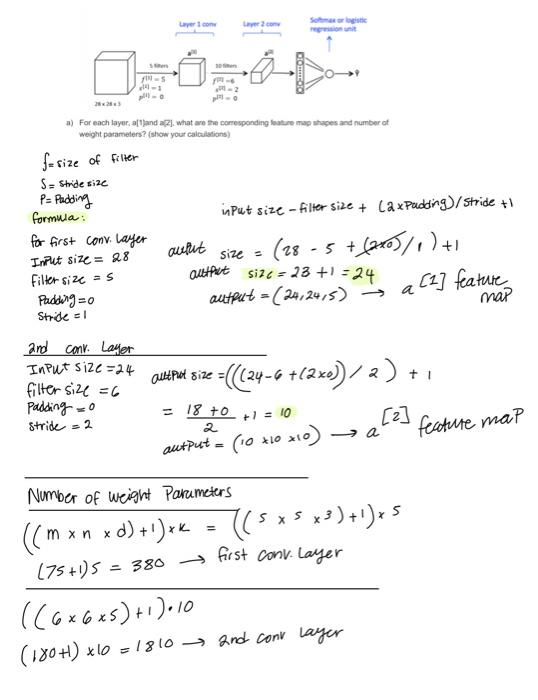 Layer 1 conv
Layer 2 conv
Softmax or logistic
regression unit
a[1]
a[2]
5 filters
10 filters
f[1] = 5
s[1] = 1
p[1] = 0
f[2] =6
s[2] = 2
p[2] = 0
28 x 28 x 3
a) For each layer, a[1]and a[2], what are the corresponding feature map shapes and number of
weight parameters? (show your calculations)
f= size of Filter
S = Stride size
P= Padding
formula:
input size - filter size + (2xPadding)/Stride +1
for first conv. Layer
Input size = 28
Filter size = 5
Padding=0
Stride =1
output size = (28 - 5 + (2x0)/1) +1
output size = 23 +1 = 24
output = (24,24,5) → a [1] feature
map
2nd conv. Layer
Input size =24
filter size =6
Padding =0
Stride = 2
output size =(((24-6 +(2x0))/2) + 1
= 18 +0 / 2 +1 = 10
output = (10 x10 x10) → a [2] feature map
Number of Weight Parameters
((m x n x d)+1)xk = ((5 x 5 x3)+1)x 5
(75+1)5 = 380 → first conv. Layer
((6x6x5)+1)•10
(180+1) x10 = 1810 → 2nd conv Layer